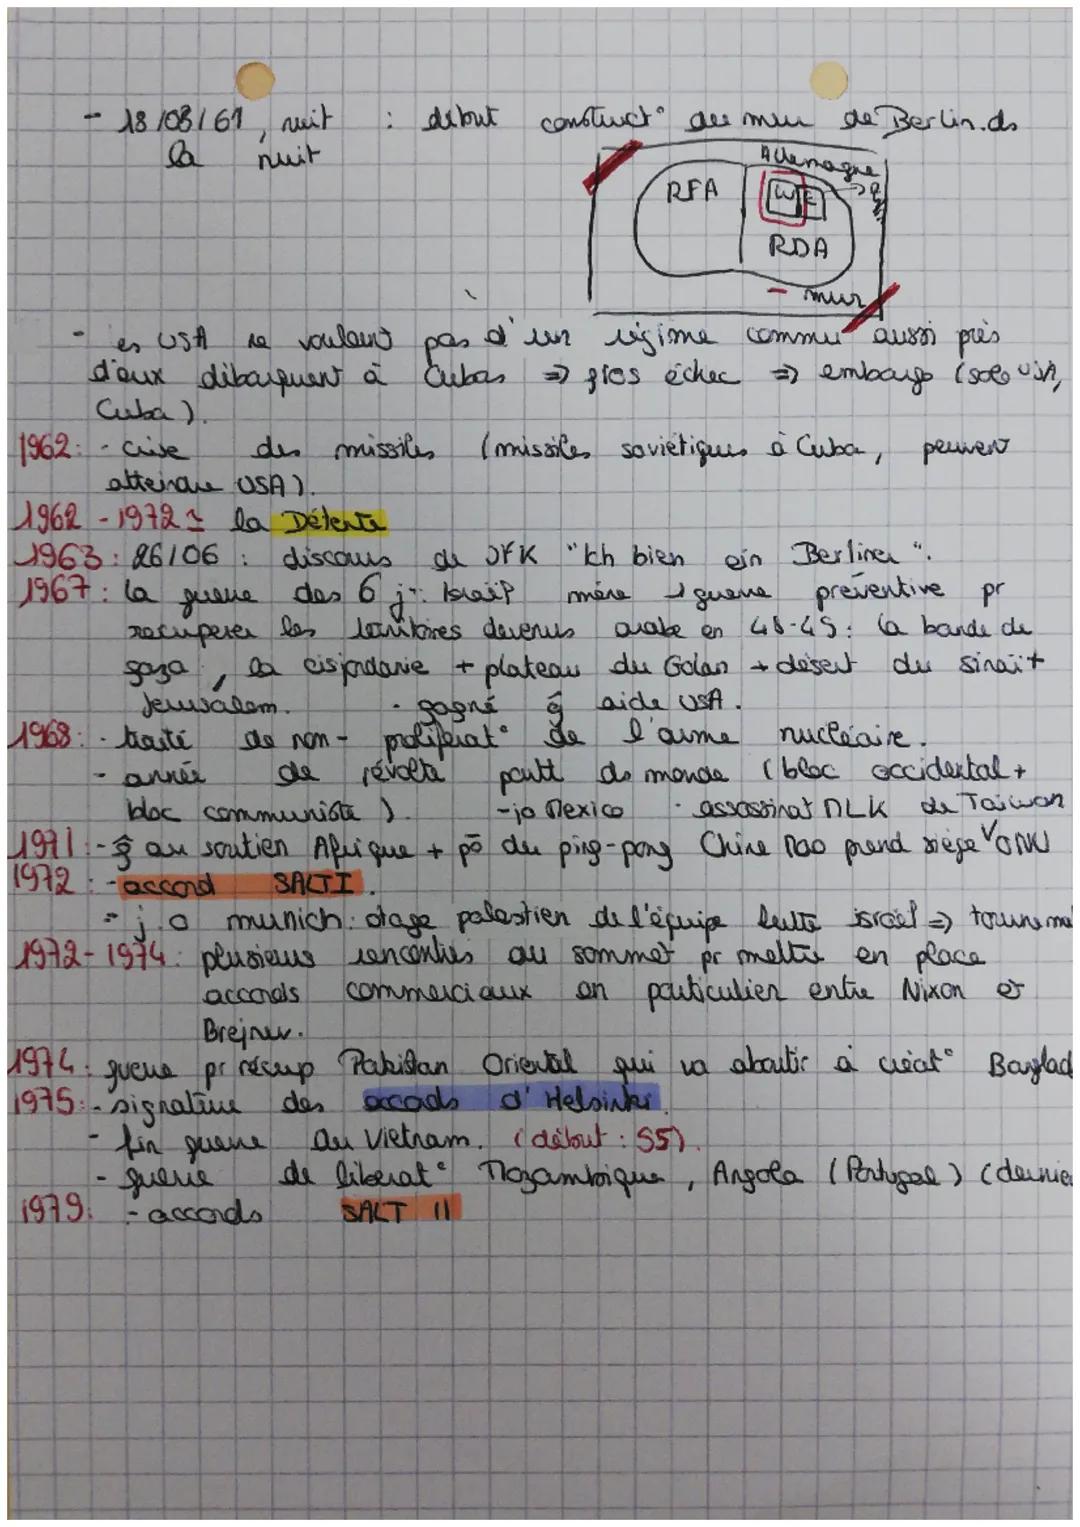 - 18/08/61, nuit : début construct° du mur de Berlin. ds
la nuit
Allemagne
RFA
W E
RDA
- mur
- es USA ne voulent pas d'un régime commu aussi près
d'eux débarquent à Cubas => gros échec => embargo (sole USA,
Cuba).
1962: - crise des missiles (missiles soviétiques à Cuba, peuvent
atteindre USA).
1962 - 1972: la Détente
1963: 26/06 : discours de JFK "Ich bien ein Berliner".
1967: la guerre des 6 j: Israël mène 1 guerre préventive pr
recuperer les territoires devenus arabe en 48-49: la bande de
gaza, la cisjordanie + plateau du Golan + désert du sinaï +
Jerusalem. - gagné ĝ aide USA.
1968: - traité de non-proliferat° de l'arme nucléaire.
- année de révolte partt ds monde (bloc occidental +
bloc communiste). - jo Mexico - assassinat MLK de Taiwan
1971: - ĝ au soutien Afrique + pō du ping-pong Chine Mao prend siège V ONU
1972: - accord SALT I.
- j.o munich: otage palestien de l'équipe lutte israël => tourne mal
1972-1974: plusieurs rencontres au sommet pr mettre en place
accords commerciaux en particulier entre Nixon et
Brejnev.
1974: guerre pr récup Pakistan Oriental qui va aboutir à créat° Banglad
1975: - signature des accods d'Helsinki.
- fin guerre du Vietnam. (début : 55).
- guerre de liberat° Mozambique, Angola (Portugal) (dernie
1979: - accords SALT II